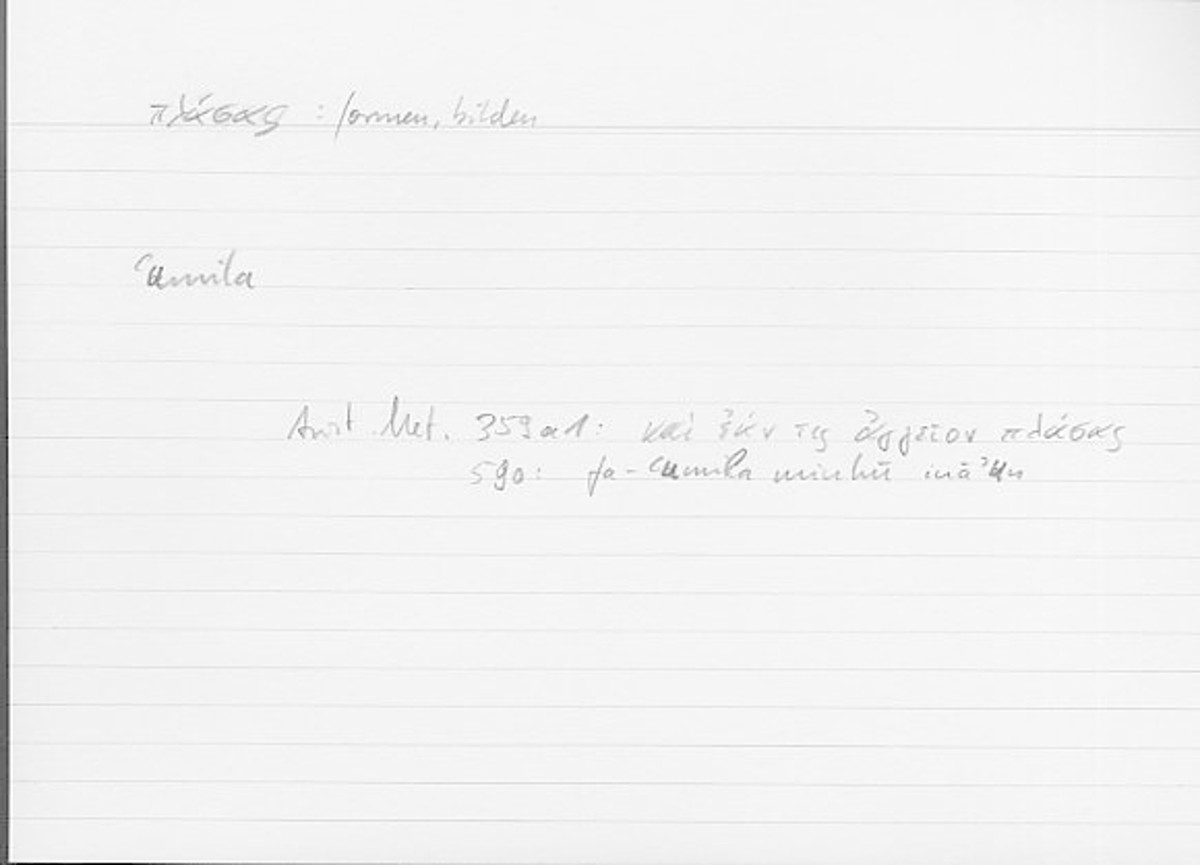 πλάσας : formen, bilden
ʿumila
Arist. Met. 359a1: καὶ ἐάν τις ἀγγεῖον πλάσας
590: fa-ʿumila minhū ināʾun